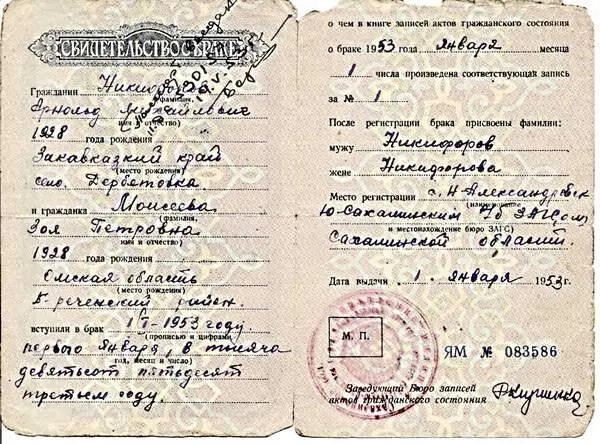 СВИДЕТЕЛЬСТВО О БРАКЕ
Гражданин Никифоров
(фамилия,
Арнольд Михайлович
имя и отчество)
1928 года рождения
Закавказкий край
(место рождения)
село, Дербетовка
и гражданка Моисеева
(фамилия,
Зоя Петровна
имя и отчество)
1928 года рождения
Омская область
(место рождения)
реченский район.
вступили в брак 1/I-1953 году
(прописью и цифрами
первого января, в тысяча
год, месяц и число)
девятьсот пятьдесят
третьем году.
о чем в книге записей актов гражданского состояния
о браке 1953 года января месяца
1 числа произведена соответствующая запись
за № 1
После регистрации брака присвоены фамилии:
мужу Никифоров
жене Никифорова
Место регистрации с. Н Александровск
(наименование
Ю-Сахалинским ГБ ЗАГСом,
и местонахождение бюро ЗАГС)
Сахалинской области.
Дата выдачи 1 января 1953 г.
М. П.
ЯМ № 083586
Заведующий Бюро записей
актов гражданского состояния